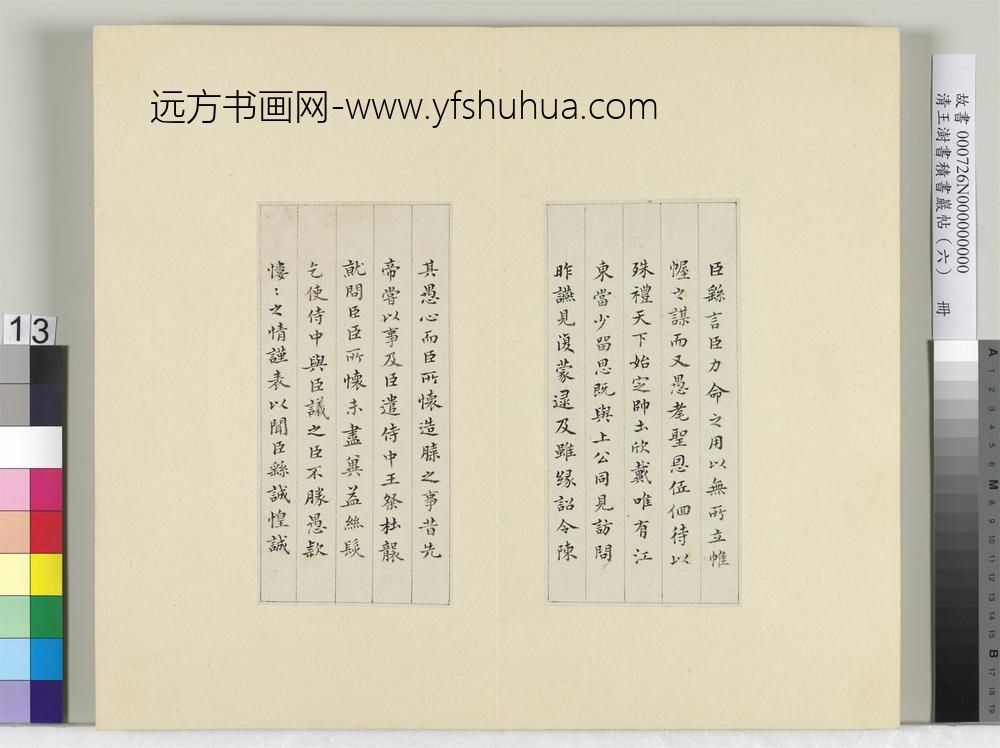 远方书画网-www.yfshuhua.com
故書 000726N000000000
清王澍書積書巖帖（六） 冊
臣繇言臣力命之用以無所立帷
幄之謀而又愚耄聖恩低佪待以
殊禮天下始定帥土欣戴唯有江
東當少留思既與上公同見訪問
昨讌見復蒙逮及雖緣詔令陳
其愚心而臣所懷造膝之事昔先
帝嘗以事及臣遣侍中王粲杜襲
就問臣臣所懷未盡冀益絲髮
乞使侍中與臣議之臣不勝愚款
悽〻之情謹表以聞臣繇誠惶誠
13
A 1 2 3 4 5 6 M 8 9 10 11 12 13 14 15 B 17 18 19